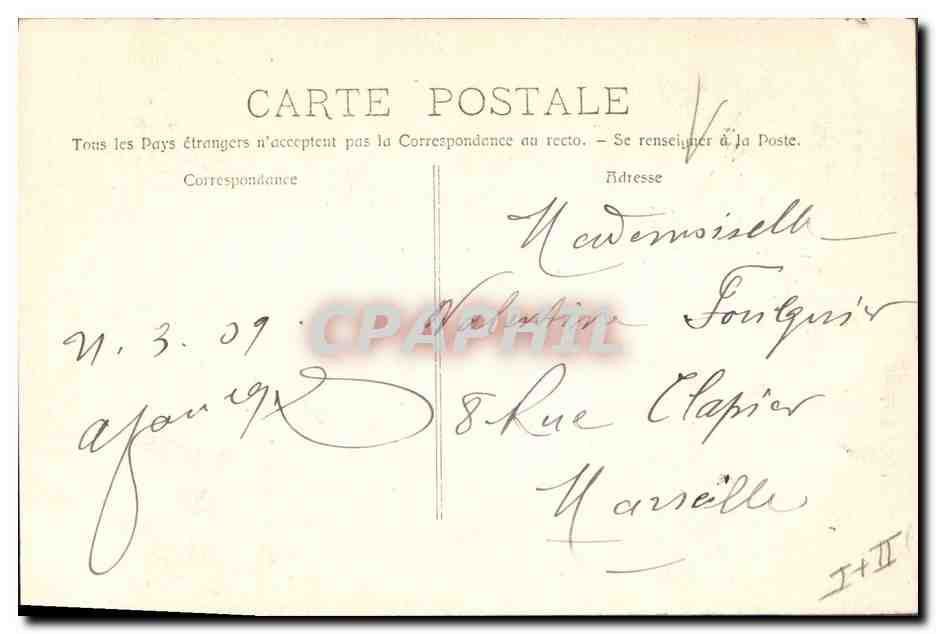 CARTE POSTALE
Tous les Pays étrangers n'acceptent pas la Correspondance au recto. – Se renseigner à la Poste.
Correspondance
Adresse
Mademoiselle
Valentine Foulquier
8 Rue Clapier
Marseille
21.3.09.
CPAPHIL
I+II